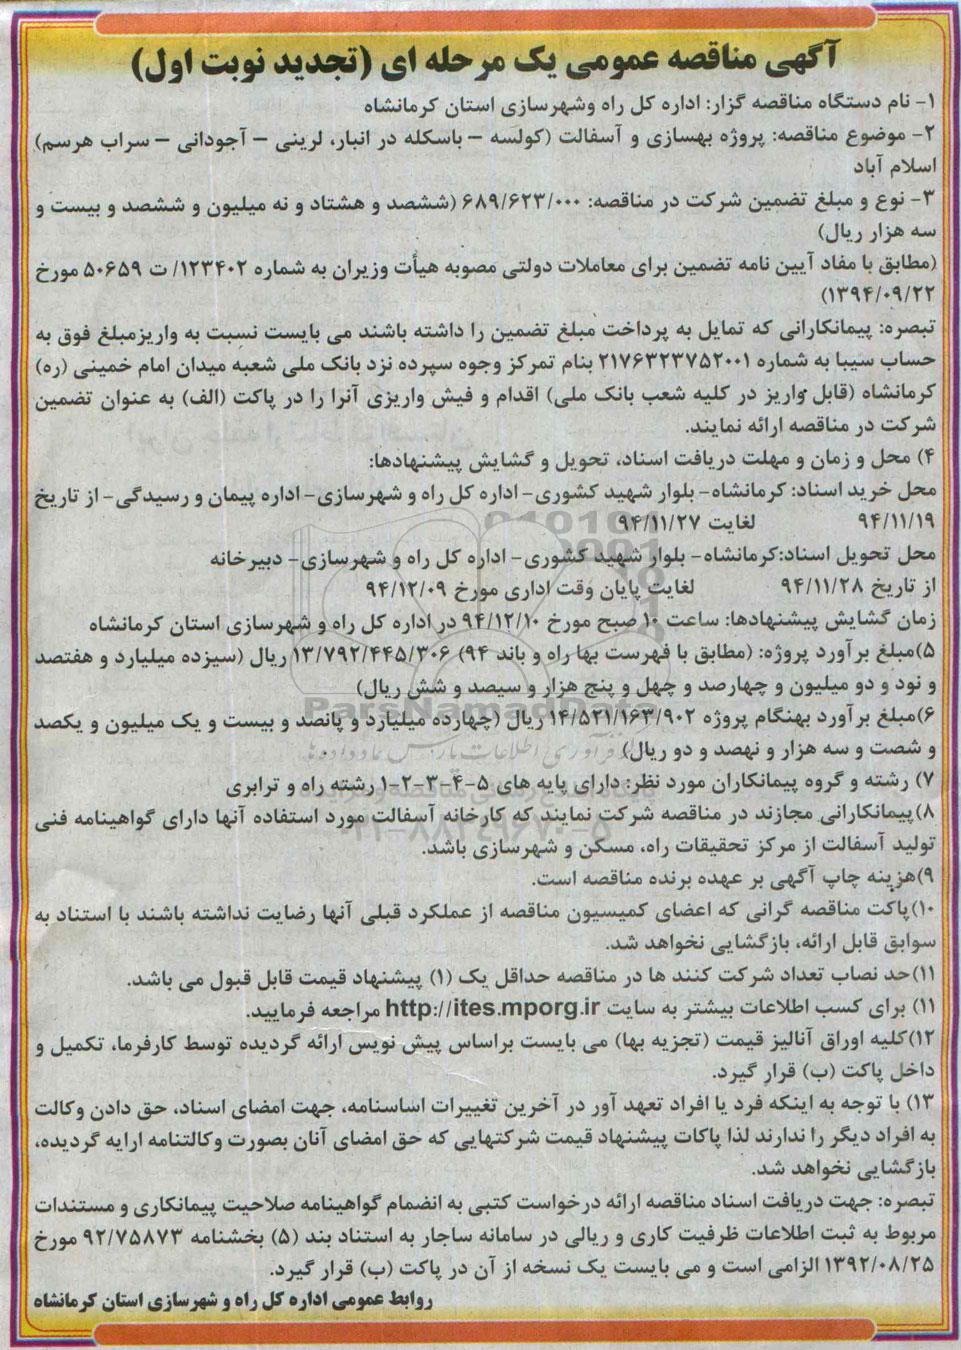 آگهی مناقصه عمومی یک مرحله ای (تجدید نوبت اول)
۱- نام دستگاه مناقصه گزار: اداره کل راه وشهرسازی استان کرمانشاه
۲- موضوع مناقصه: پروژه بهسازی و آسفالت (کولسه – باسکله در انبار، لرینی – آجودانی – سراب هرسم)
اسلام آباد
۳- نوع و مبلغ تضمین شرکت در مناقصه: ۶۸۹/۶۲۳/۰۰۰ (ششصد و هشتاد و نه میلیون و ششصد و بیست و
سه هزار ریال)
(مطابق با مفاد آیین نامه تضمین برای معاملات دولتی مصوبه هیأت وزیران به شماره ۱۲۳۴۰۲/ ت ۵۰۶۵۹ مورخ
۱۳۹۴/۰۹/۲۲)
تبصره: پیمانکارانی که تمایل به پرداخت مبلغ تضمین را داشته باشند می بایست نسبت به واریزمبلغ فوق به
حساب سیبا به شماره ۲۱۷۶۳۲۳۷۵۲۰۰۱ بنام تمرکز وجوه سپرده نزد بانک ملی شعبه میدان امام خمینی (ره)
کرمانشاه (قابل واریز در کلیه شعب بانک ملی) اقدام و فیش واریزی آنرا را در پاکت (الف) به عنوان تضمین
شرکت در مناقصه ارائه نمایند.
۴) محل و زمان و مهلت دریافت اسناد، تحویل و گشایش پیشنهادها:
محل خرید اسناد: کرمانشاه- بلوار شهید کشوری- اداره کل راه و شهرسازی- اداره پیمان و رسیدگی- از تاریخ
۹۴/۱۱/۱۹ لغایت ۹۴/۱۱/۲۷
محل تحویل اسناد:کرمانشاه- بلوار شهید کشوری- اداره کل راه و شهرسازی- دبیرخانه
از تاریخ ۹۴/۱۱/۲۸ لغایت پایان وقت اداری مورخ ۹۴/۱۲/۰۹
زمان گشایش پیشنهادها: ساعت ۱۰ صبح مورخ ۹۴/۱۲/۱۰ در اداره کل راه و شهرسازی استان کرمانشاه
۵)مبلغ برآورد پروژه: (مطابق با فهرست بها راه و باند ۹۴) ۱۳/۷۹۲/۴۴۵/۳۰۶ ریال (سیزده میلیارد و هفتصد
و نود و دو میلیون و چهارصد و چهل و پنج هزار و سیصد و شش ریال)
۶)مبلغ برآورد بهنگام پروژه ۱۴/۵۲۱/۱۶۳/۹۰۲ ریال (چهارده میلیارد و پانصد و بیست و یک میلیون و یکصد
و شصت و سه هزار و نهصد و دو ریال)
۷) رشته و گروه پیمانکاران مورد نظر: دارای پایه های ۵-۴-۳-۲-۱ رشته راه و ترابری
۸)پیمانکارانی مجازند در مناقصه شرکت نمایند که کارخانه آسفالت مورد استفاده آنها دارای گواهینامه فنی
تولید آسفالت از مرکز تحقیقات راه، مسکن و شهرسازی باشد.
۹)هزینه چاپ آگهی بر عهده برنده مناقصه است.
۱۰)پاکت مناقصه گرانی که اعضای کمیسیون مناقصه از عملکرد قبلی آنها رضایت نداشته باشند با استناد به
سوابق قابل ارائه، بازگشایی نخواهد شد.
۱۱)حد نصاب تعداد شرکت کنند ها در مناقصه حداقل یک (۱) پیشنهاد قیمت قابل قبول می باشد.
۱۱) برای کسب اطلاعات بیشتر به سایت http://ites.mporg.ir مراجعه فرمایید.
۱۲)کلیه اوراق آنالیز قیمت (تجزیه بها) می بایست براساس پیش نویس ارائه گردیده توسط کارفرما، تکمیل و
داخل پاکت (ب) قرار گیرد.
۱۳) با توجه به اینکه فرد یا افراد تعهد آور در آخرین تغییرات اساسنامه، جهت امضای اسناد، حق دادن وکالت
به افراد دیگر را ندارند لذا پاکات پیشنهاد قیمت شرکتهایی که حق امضای آنان بصورت وکالتنامه ارایه گردیده،
بازگشایی نخواهد شد.
تبصره: جهت دریافت اسناد مناقصه ارائه درخواست کتبی به انضمام گواهینامه صلاحیت پیمانکاری و مستندات
مربوط به ثبت اطلاعات ظرفیت کاری و ریالی در سامانه ساجار به استناد بند (۵) بخشنامه ۹۲/۷۵۸۷۳ مورخ
۱۳۹۲/۰۸/۲۵ الزامی است و می بایست یک نسخه از آن در پاکت (ب) قرار گیرد.
روابط عمومی اداره کل راه و شهرسازی استان کرمانشاه
ParsNamadData